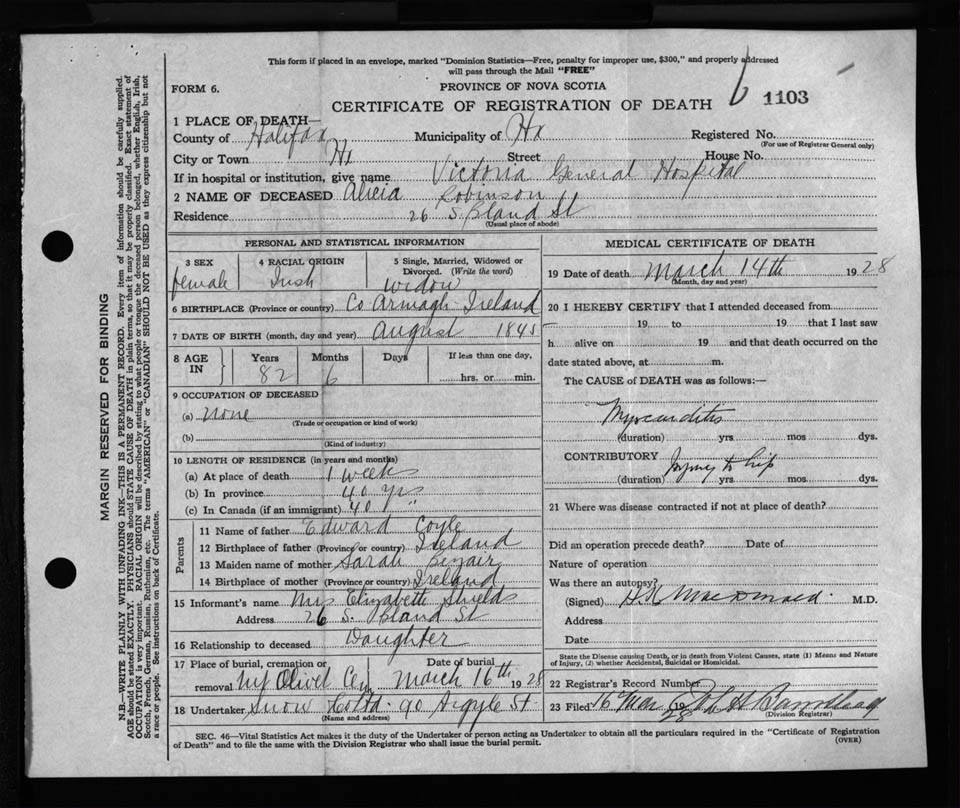 This form if placed in an envelope, marked "Dominion Statistics—Free, penalty for improper use, $300," and properly addressed
will pass through the Mail "FREE"
FORM 6.
PROVINCE OF NOVA SCOTIA
CERTIFICATE OF REGISTRATION OF DEATH 6 1103
1 PLACE OF DEATH—
County of Halifax Municipality of Hx Registered No.
(For use of Registrar General only)
City or Town Hx Street House No.
If in hospital or institution, give name Victoria General Hospital
2 NAME OF DECEASED Alicia Robinson
Residence 26 S. Bland St
(Usual place of abode)
PERSONAL AND STATISTICAL INFORMATION
3 SEX 4 RACIAL ORIGIN 5 Single, Married, Widowed or
Divorced. (Write the word)
female Irish widow
6 BIRTHPLACE (Province or country) Co Armagh Ireland
7 DATE OF BIRTH (month, day and year) August 1845
8 AGE IN Years Months Days If less than one day,
82 6 hrs. or min.
9 OCCUPATION OF DECEASED
(a) none
(Trade or occupation or kind of work)
(b)
(Kind of industry)
10 LENGTH OF RESIDENCE (in years and months)
(a) At place of death 1 week
(b) In province 40 yrs
(c) In Canada (if an immigrant) 40 "
Parents
11 Name of father Edward Coyle
12 Birthplace of father (Province or country) Ireland
13 Maiden name of mother Sarah
14 Birthplace of mother (Province or country) Ireland
15 Informant's name Mrs Elizabeth Shields
Address 26 S. Bland St
16 Relationship to deceased Daughter
17 Place of burial, cremation or Date of burial
removal Mt Olivet Cem March 16th 1928
18 Undertaker Snow Co Ltd. 90 Argyle St
(Name and address)
MEDICAL CERTIFICATE OF DEATH
19 Date of death March 14th 1928
(Month, day and year)
20 I HEREBY CERTIFY that I attended deceased from
19 to 19 that I last saw
h alive on 19 and that death occurred on the
date stated above, at m.
The CAUSE of DEATH was as follows:—
Myocarditis
(duration) yrs mos dys.
CONTRIBUTORY Injury to hip
(duration) yrs mos dys.
21 Where was disease contracted if not at place of death?
Did an operation precede death? Date of
Nature of operation
Was there an autopsy?
(Signed) MacDonald M.D.
Address
Date
State the Disease causing Death, or in death from Violent Causes, state (1) Means and Nature
of Injury, (2) whether Accidental, Suicidal or Homicidal.
22 Registrar's Record Number
23 Filed 16 Mar 1928
(Division Registrar)
SEC. 46—Vital Statistics Act makes it the duty of the Undertaker or person acting as Undertaker to obtain all the particulars required in the "Certificate of Registration
of Death" and to file the same with the Division Registrar who shall issue the burial permit.
(OVER)
MARGIN RESERVED FOR BINDING
N.B.—WRITE PLAINLY WITH UNFADING INK—THIS IS A PERMANENT RECORD. Every item of information should be carefully supplied.
AGE should be stated EXACTLY. PHYSICIANS should STATE CAUSE OF DEATH in plain terms, so that it may be properly classified. Exact statement of
OCCUPATION is very important. RACIAL ORIGIN will be described by stating to what people or tongue the deceased person belonged, whether English, Irish,
Scotch, French, German, Russian, Ruthenian, etc. The terms "AMERICAN" or "CANADIAN" SHOULD NOT BE USED as they express citizenship but not
a race or people. See instructions on back of Certificate.